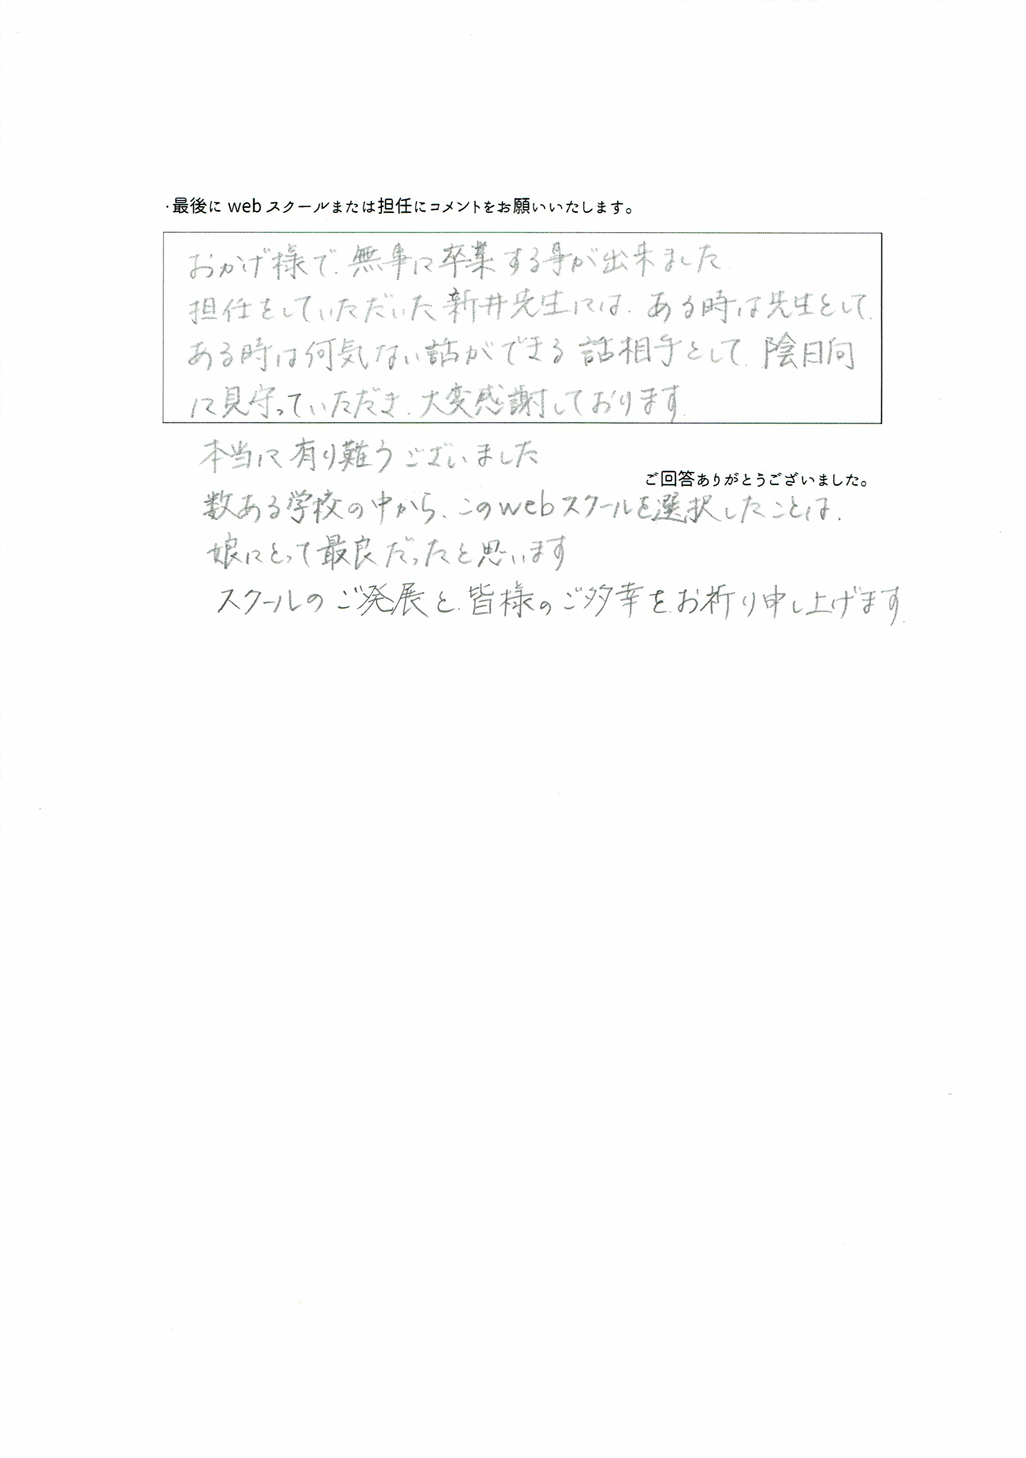 ・最後に web スクールまたは担任にコメントをお願いいたします。
おかげ様で、無事に卒業する事が出来ました
担任をしていただいた新井先生には、ある時は先生として、
ある時は何気ない話ができる話相手として、陰日向
に見守っていただき、大変感謝しております。
本当に有り難うございました
ご回答ありがとうございました。
数ある学校の中から、このwebスクールを選択したことは、
娘にとって最良だったと思います
スクールのご発展と、皆様のご多幸をお祈り申し上げます。